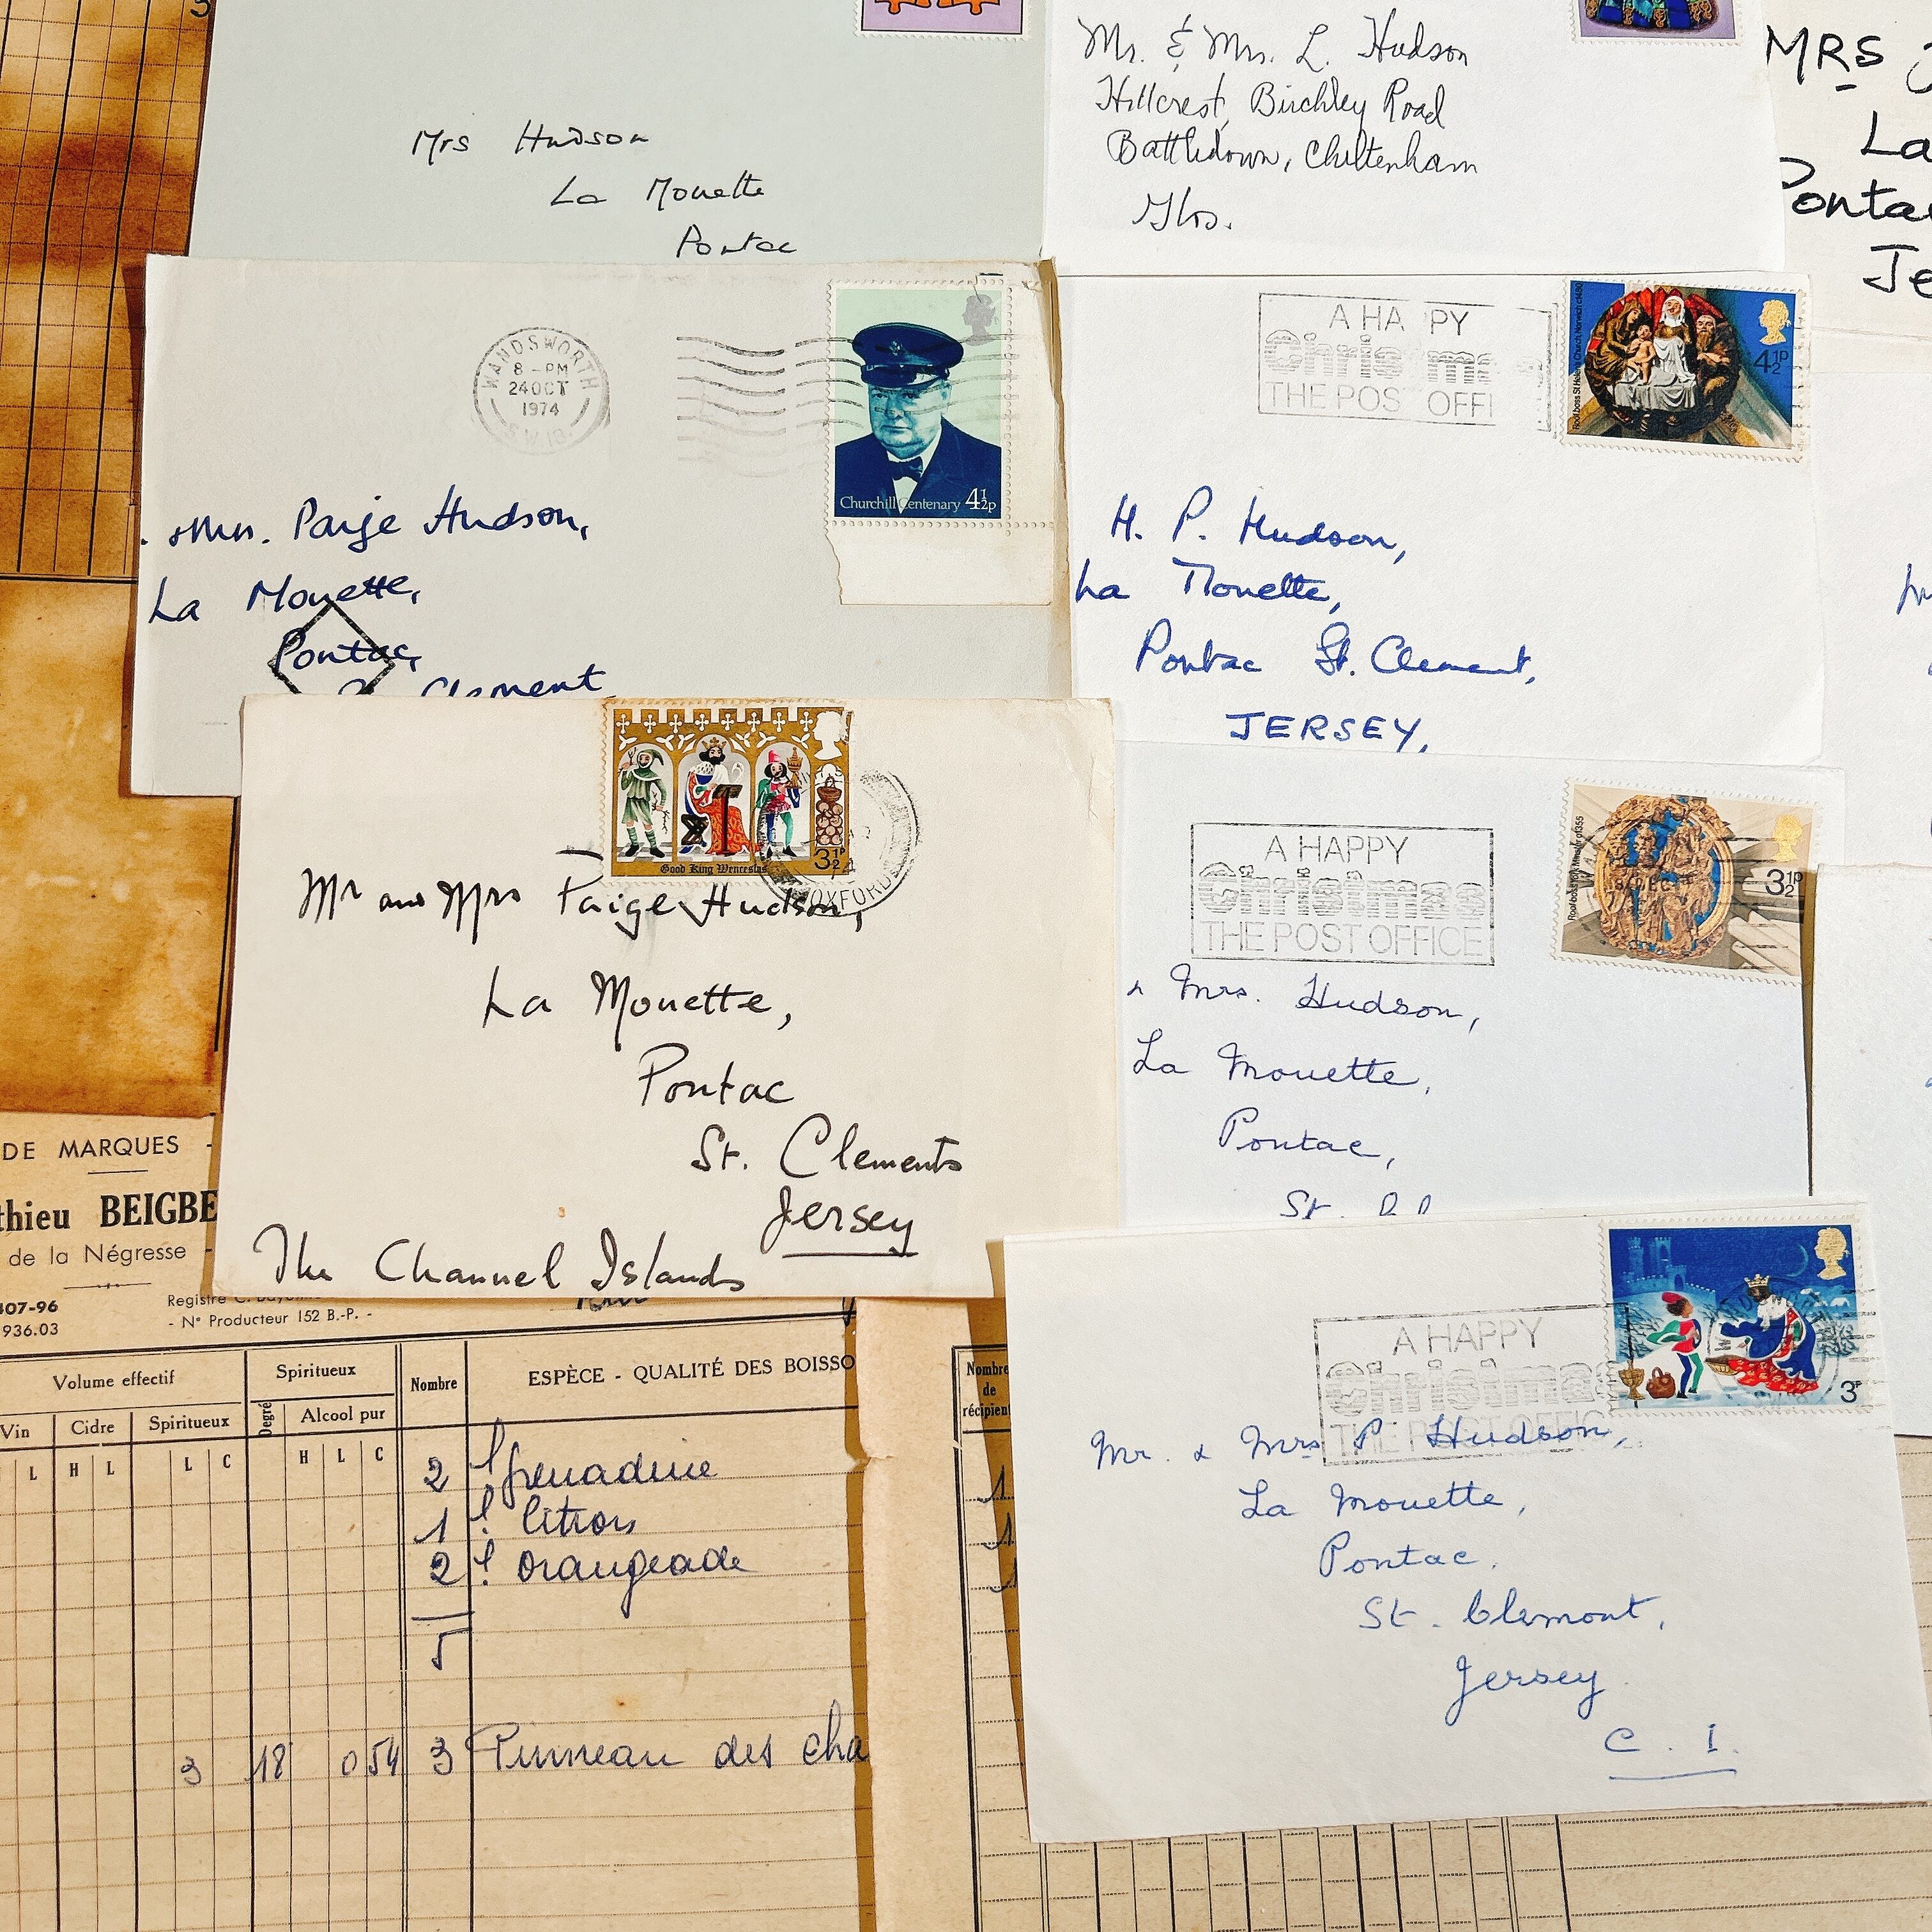 Mrs Hudson
La Mouette
Pontac
Mr. & Mrs. L. Hudson
Hillcrest, Birchley Road
Battledown, Cheltenham
Glos.
MRS
La
Ponta
Je
WANDSWORTH
8 - PM
24 OCT
1974
S.W.18.
Churchill Centenary 4½p
Mrs. Paige Hudson,
La Mouette,
Pontac,
Clement,
A HA PY
Christma
THE POS OFFI
4½p
H. P. Hudson,
La Mouette,
Pontac St. Clement,
JERSEY,
3½p
Good King Wenceslas
OXFORDS
Mr and Mrs Paige Hudson,
La Mouette,
Pontac
St. Clements
Jersey
The Channel Islands
A HAPPY
Christmas
THE POST OFFICE
3½p
& Mrs. Hudson,
La Mouette,
Pontac,
St.
A HAPPY
Christma
THE POST OFFIC
3p
Mr. & Mrs P. Hudson,
La Mouette,
Pontac,
St. Clemont,
Jersey
C. I.
DE MARQUES -
thieu BEIGBE
de la Négresse -
407-96
936.03
Registre C.
- N° Producteur 152 B.-P. -
Volume effectif
Spiritueux
Nombre
ESPÈCE - QUALITÉ DES BOISSO
Vin
Cidre
Spiritueux
Degré
Alcool pur
L H L L C H L C
2 l grenadine
1 l. citron
2 l. orangeade
5
3 18 0 54 3 Pinneau des cha
Nombre
de
récipient
1
1